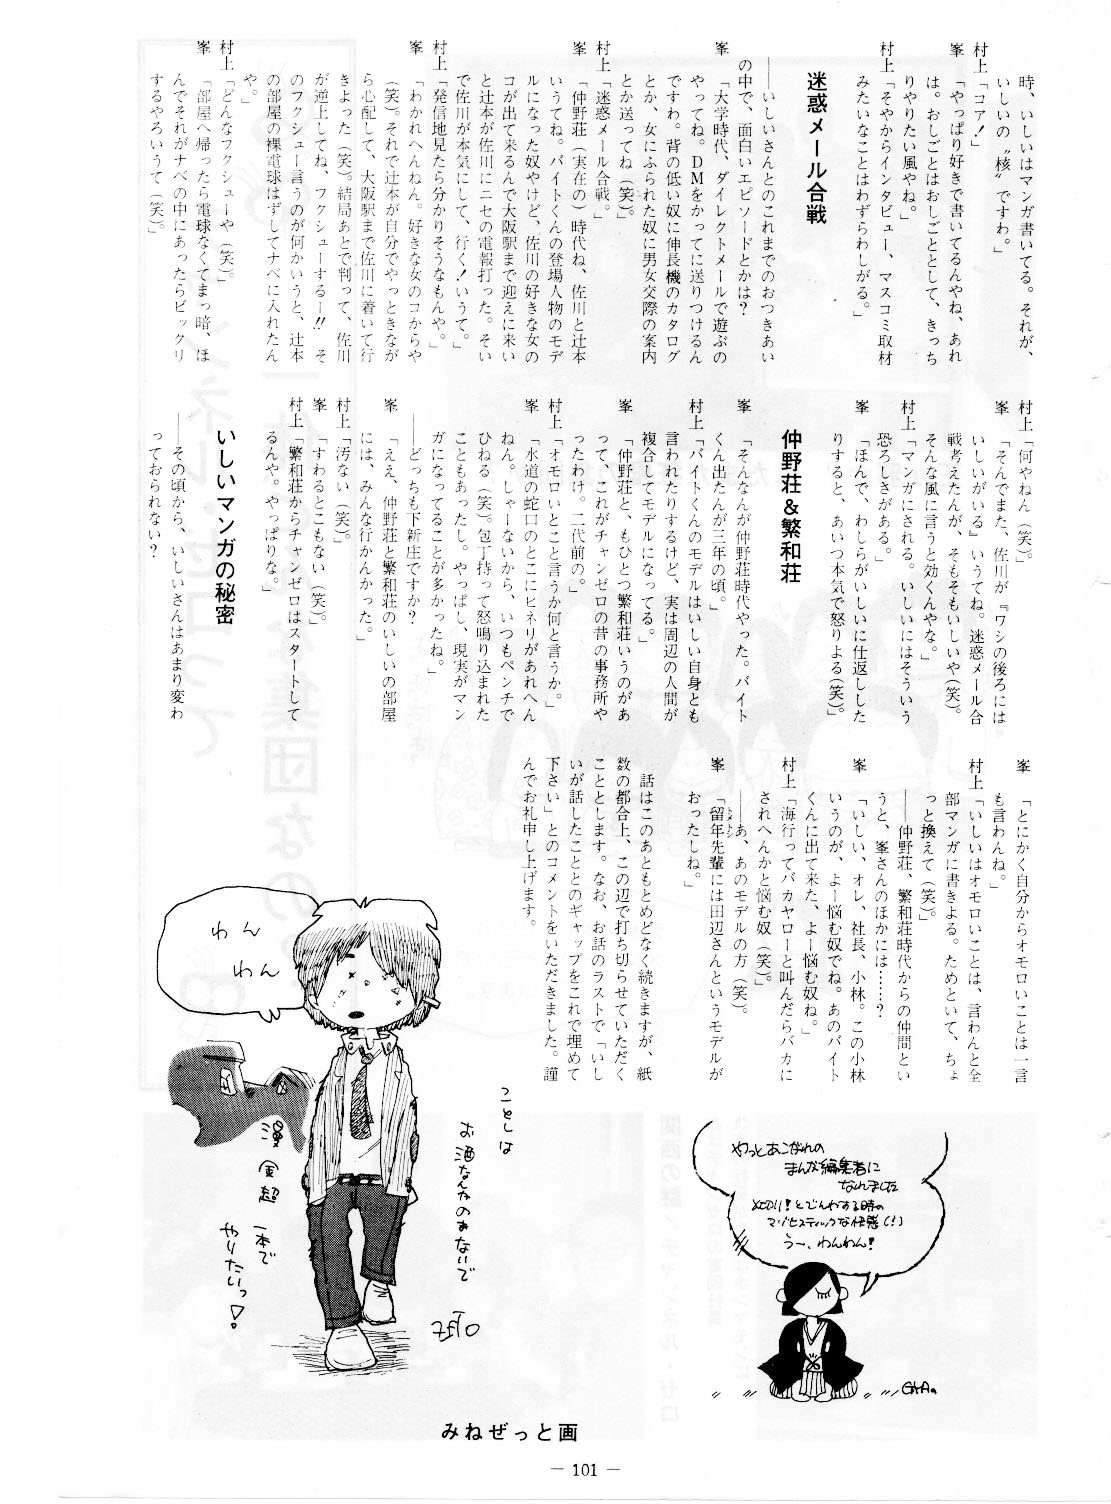 時、いしいはマンガ書いてる。それが、
いしいの〝核〟ですわ。
村上「コア！」
峯　「やっぱり好きで書いてるんやね、あれ
は。おしごとはおしごととして、きっち
りやりたい風やね。」
村上「そやからインタビュー、マスコミ取材
みたいなことはわずらわしがる。」
迷惑メール合戦
──いしいさんとのこれまでのおつきあい
の中で、面白いエピソードとかは？
峯　「大学時代、ダイレクトメールで遊ぶの
やってね。DMをかってに送りつけるん
ですわ。背の低い奴に伸長機のカタログ
とか、女にふられた奴に男女交際の案内
とか送ってね（笑）。」
村上「迷惑メール合戦。」
峯　「仲野荘（実在の）時代ね、佐川と辻本
いうてね。バイトくんの登場人物のモデ
ルになった奴やけど、佐川の好きな女の
コが出て来るんで大阪駅まで迎えに来い
と辻本が佐川にニセの電報打った。そい
で佐川が本気にして、行く！いうて。」
村上「発信地見たら分かりそうなもんや。」
峯　「わかれへんねん。好きな女のコからや
（笑）。それで辻本が自分でやっときなが
ら心配して、大阪駅まで佐川に着いて行
きよった（笑）。結局あとで判って、佐川
が逆上してね、フクシューするー!!　そ
のフクシュー言うのが何かいうと、辻本
の部屋の裸電球はずしてナベに入れたん
や。」
村上「どんなフクシューや（笑）。」
峯　「部屋へ帰ったら電球なくてまっ暗、ほ
んでそれがナベの中にあったらビックリ
するやろいうて（笑）。」
村上「何やねん（笑）。」
峯　「そんでまた、佐川が『ワシの後ろには
いしいがいる』いうてね。迷惑メール合
戦考えたんが、そもそもいしいや（笑）。
そんな風に言うと効くんやな。」
村上「マンガにされる。いしいにはそういう
恐ろしさがある。」
峯　「ほんで、わしらがいしいに仕返しした
りすると、あいつ本気で怒りよる（笑）。」
仲野荘＆繁和荘
峯　「そんなんが仲野荘時代やった。バイト
くん出たんが三年の頃。」
村上「バイトくんのモデルはいしい自身とも
言われたりするけど、実は周辺の人間が
複合してモデルになってる。」
峯　「仲野荘と、もひとつ繁和荘いうのがあ
って、これがチャンゼロの昔の事務所や
ったわけ。二代前の。」
村上「オモロいとこと言うか何と言うか。」
峯　「水道の蛇口のとこにヒネリがあれへん
ねん。しゃーないから、いつもペンチで
ひねる（笑）。包丁持って怒鳴り込まれた
こともあったし。やっぱし、現実がマン
ガになってることが多かったね。」
──どっちも下新庄ですか？
峯　「ええ、仲野荘と繁和荘のいしいの部屋
には、みんな行かんかった。」
村上「汚ない（笑）。」
峯　「すわるとこもない（笑）。」
村上「繁和荘からチャンゼロはスタートして
るんや。やっぱりな。」
いしいマンガの秘密
──その頃から、いしいさんはあまり変わ
っておられない？
峯　「とにかく自分からオモロいことは一言
も言わんね。」
村上「いしいはオモロいことは、言わんと全
部マンガに書きよる。ためといて、ちょ
っと換えて（笑）。
──仲野荘、繁和荘時代からの仲間とい
うと、峯さんのほかには……？
峯　「いしい、オレ、社長、小林。この小林
いうのが、よー悩む奴でね。あのバイト
くんに出て来た、よー悩む奴ね。」
村上「海行ってバカヤローと叫んだらバカに
されへんかと悩む奴（笑）。
──あ、あのモデルの方（笑）。
峯　「留年先輩には田辺さんというモデルが
おったしね。」
話はこのあともとめどなく続きますが、紙
数の都合上、この辺で打ち切らせていただく
こととします。なお、お話のラストで「いし
いが話したこととのギャップをこれで埋めて
下さい」とのコメントをいただきました。謹
んでお礼申し上げます。
わん
わん
ことしは
お酒なんかのまないで
一本で
やりたいっ！
やっとあこがれの
まんが編集者に
なれました
〆切り！とでんわする時の
マゾヒスティックな快感（！）
うー、わんわん！
みねぜっと画
— 101 —